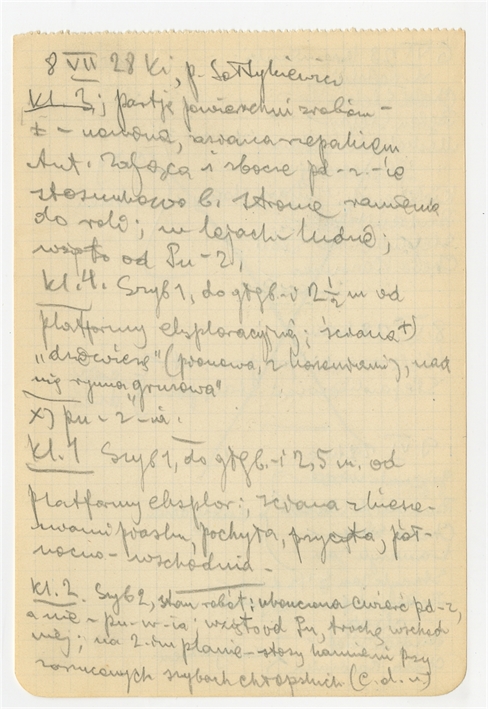 8 VII 28 Ki, p. Sołtykiewicz
Kl. 3; partje powierzchni zrobom-
ł - nawona, zwana rzepakiem
Ant. i zbocze pd-z.-ie
stosunkowo b. strome ramienia
do rold; w lejach ludzie;
wzięto od Pn-Z;
Kl. 4. Szyb 1, do głęb-i 2½ m od
platformy eksploracyjnej; ściana +)
(pionowa, z korzeniami), nad
nią rynna „gruzowa"
X) pn-z-ia.
Kl. 1 Szyb 1, do głęb.-i 2,5 m. od
platformy eksplor.; ściana z kiesze-
niami piasku, pochyła, przycięta, pół-
nocno-wschodnia-
Kl. 2. Szyb 2, stan robót; ukończona ćwierć pd-z,
a nie - pn-w-ia; wzięto od Pn, trochę wschod
niej; na 2-im planie - stosy kamieni przy
zarzuconych szybach chłopskich (c.d.n)